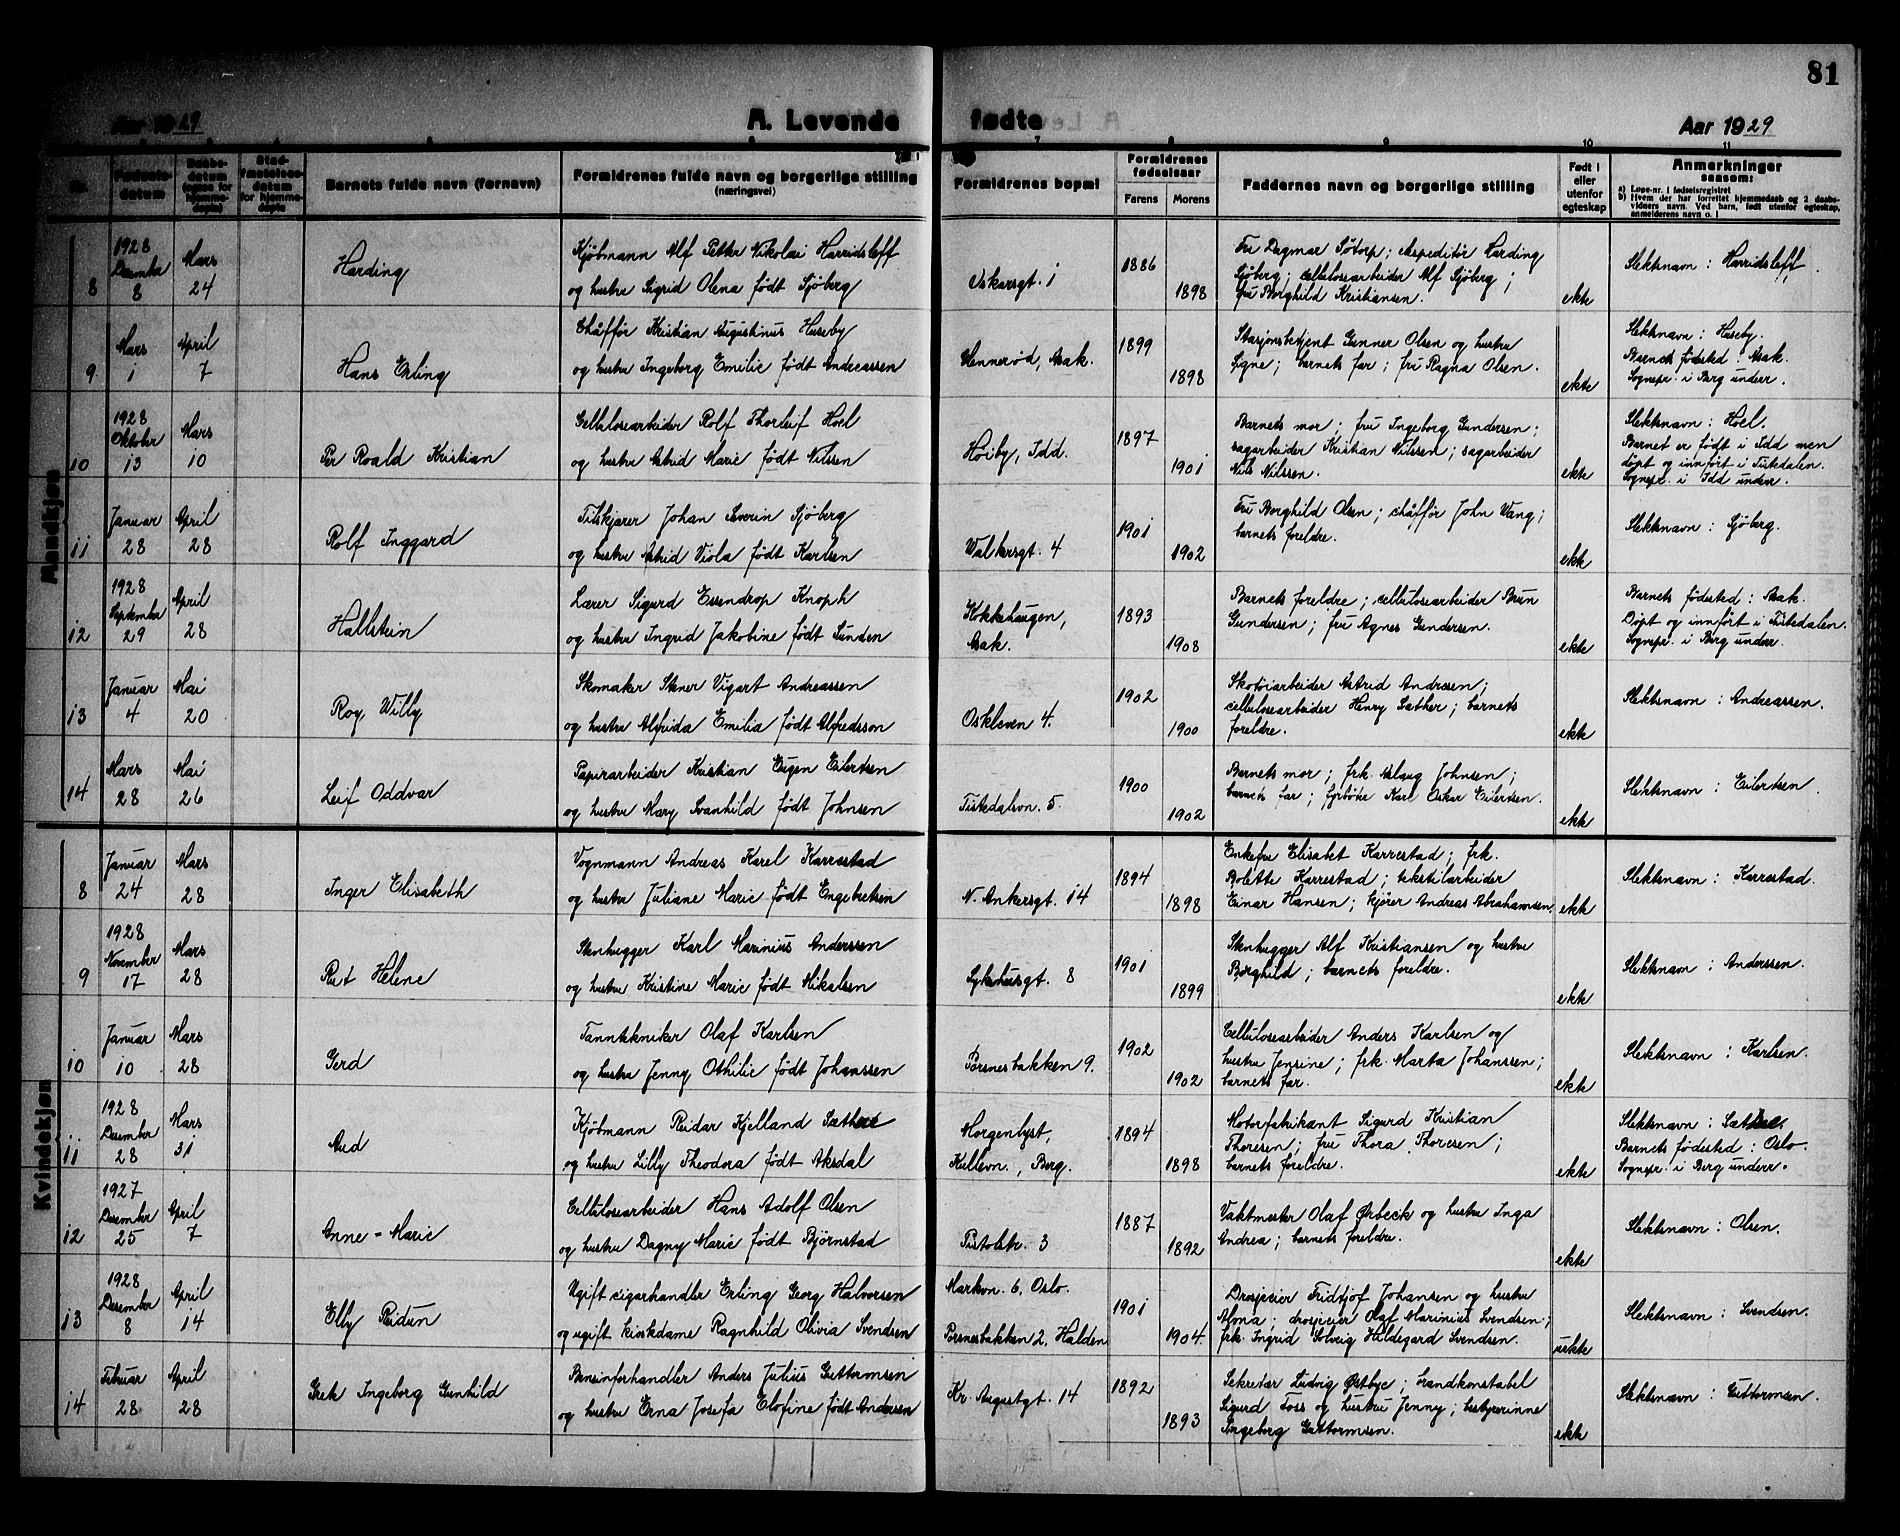 81
Aar 1929
A. Levende
fødte
Aar 1929
Nr.
Fødselsdatum
Daabsdatum (ogsaa for hjemmedøpte)
Stadfæstelsesdatum for hjemmedøpte
Barnets fulde navn (fornavn)
Forældrenes fulde navn og borgerlige stilling
(næringsvei)
Forældrenes bopæl
Forældrenes fødselsaar
Farens
Morens
Faddernes navn og borgerlige stilling
Født i eller utenfor egteskap
Anmerkninger
saasom:
a) Løpe-nr. i fødselsregistret
b) Hvem der har forrettet hjemmedaab og 2 daabsvidners navn. Ved barn, født utenfor egteskap, anmelderens navn o. l
Mandkjøn
8
1928 Desember 8
Mars 24
Harding
Kjøbmann Alf Petter Nikolai Harridsleff
og hustru Sigrid Olena født Sjøberg
Oskarsgt. 1
1886
1898
Fru Dagmar Søtorp; ekspeditør Harding
Sjøberg; cellulosearbeider Alf Sjøberg;
fru Borghild Kristiansen.
ekte
Slektsnavn: Harridsleff.
9
Mars 1
April 7
Hans Erling
Chåffør Kristian Augustinus Huseby
og hustru Ingeborg Emilie født Andreassen
Glennerød, Asak.
1899
1898
Stasjonsbetjent Gunner Olsen og hustru
Signe; barnets far; fru Ragna Olsen.
ekte
Slektsnavn: Huseby.
Barnets fødested: Asak.
Sognepr. i Berg underr.
10
1928 Oktober 13
Mars 10
Per Roald Kristian
Cellulosearbeider Rolf Thorleif Hoel
og hustru Astrid Marie født Nilsen
Høiby, Idd.
1897
1901
Barnets mor; fru Ingeborg Gundersen;
sagarbeider Kristian Nilssen; sagarbeider
Nils Nilssen.
ekte
Slektsnavn: Hoel.
Barnet er født i Idd men
døpt og innført i Tistedalen.
Sognepr. i Idd underr.
11
Januar 28
April 28
Rolf Inggard
Filskjærer Johan Severin Sjøberg
og hustru Astrid Viola født Karlsen
Walkersgt. 4
1901
1902
Fru Borghild Olsen; chåffør John Wang;
barnets foreldre.
ekte
Slektsnavn: Sjøberg.
12
1928 September 29
April 28
Hallstein
Lærer Sigurd Essendrop Knoph
og hustru Ingrid Jakobine født Sunden
Kokkehaugen,
Asak.
1893
1908
Barnets foreldre; cellulosearbeider Brun
Gundersen; fru Agnes Gundersen.
ekte
Barnets fødested: Asak.
Døpt og innført i Tistedalen.
Sognepr. i Berg underr.
13
Januar 4
Mai 20
Roy Willy
Skomaker Stener Vigart Andreassen
og hustru Alfrida Emilia født Alfredsson
Oskleven 4.
1902
1900
Skotøiarbeider Astrid Andresen;
cellulosearbeider Henry Sæther; barnets
foreldre.
ekte
Slektsnavn: Andreassen.
14
Mars 28
Mai 26
Leif Oddvar
Papirarbeider Kristian Eugen Eilertsen
og hustru Mary Svanhild født Johnsen
Tistedalsvn. 5
1900
1902
Barnets mor; frk. Aslaug Johnsen;
barnets far; fyrbøter Karl Oskar Eilertsen.
ekte
Slektsnavn: Eilertsen
Kvindekjøn
8
Januar 24
Mars 28
Inger Elisabeth
Vognmann Andreas Karel Karrestad
og hustru Juliane Marie født Engebretsen
N. Ankersgt. 14
1894
1898
Enkefru Elisabet Karrestad; frk.
Bolette Karrestad; tekstilarbeider
Einar Hansen; kjører Andreas Abrahamsen.
ekte
Slektsnavn: Karrestad.
9
1928 November 17
Mars 28
Rut Helene
Stenhugger Karl Marinius Anderssen
og hustru Kristine Marie født Mikalsen
Sykehusgt. 8
1901
1899
Stenhugger Alf Kristiansen og hustru
Borghild; barnets foreldre.
ekte
Slektsnavn: Anderssen.
10
Januar 10
Mars 28
Gerd
Tanntekniker Olaf Karlsen
og hustru Jenny Othilie født Johanssen
Porsnesbakken 9.
1902
1902
Cellulosearbeider Anders Karlsen og
hustru Jensine; frk. Marta Johanssen;
barnets far.
ekte
Slektsnavn: Karlsen.
11
1928 Desember 28
Mars 31
Aud
Kjøbmann Reidar Kjelland Sæther
og hustru Lilly Theodora født Aksdal
Morgenlyst,
Berg.
1894
1898
Motorfabrikant Sigurd Kristian
Thoresen; fru Thora Thoresen;
barnets foreldre.
ekte
Slektsnavn: Sæther.
Barnets fødested: Oslo.
Sognepr. i Berg underr.
12
1927 Desember 25
April 7
Anne-Marie
Cellulosearbeider Hans Adolf Olsen
og hustru Dagny Marie født Bjørnstad
Pistolstr. 3
1887
1892
Vaktmester Olaf Ørbeck og hustru Inga
Andrea; barnets foreldre.
ekte
Slektsnavn: Olsen.
13
1928 Desember 8
April 14
Elly Reidun
Ugift cigarhandler Erling Georg Halvorsen
og ugift kioskdame Ragnhild Olivia Svendsen
Markvn. 6, Oslo.
Porsnesbakken 2, Halden
1901
1904
Drosjeeier Fridtjof Johansen og hustru
Alona; drosjeeier Olaf Marinius Svendsen;
frk. Ingrid Solveig Hildegard Svendsen.
uekte
Slektsnavn: Svendsen.
14
Februar 28
April 28
Grete Ingeborg Gunhild
Bensinforhandler Anders Julius Guttormsen
og hustru Erna Josefa Elofine født Andersen
Kr. Augustgt. 14
1892
1893
Sekretær Ludvig Østbye; brandkonstabel
Sigurd Foss og hustru Jenny; bestyrerinne
Ingeborg Guttormsen.
ekte
Slektsnavn: Guttormsen.